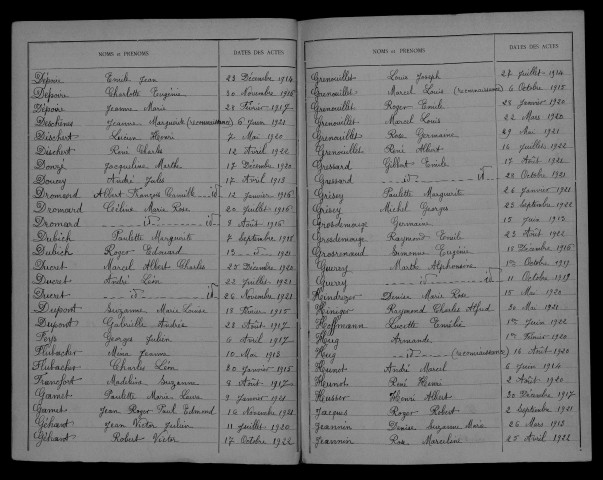 NOMS et PRÉNOMS DATES DES ACTES
Dépoire Emile Jean 23 Décembre 1914
Dépoire Charlotte Eugénie 30 Novembre 1916
Dépoire Jeanne Marie 28 Février 1917
Deschênes Jeanne Marguerite (reconnaissance) 6 Juin 1921
Dischert Lucien Henri 7 Mai 1920
Dischert René Charles 12 Avril 1922
Donzé Jacqueline Marthe 17 Décembre 1920
Dourcy André Jules 17 Avril 1915
Dromard Albert François Camille id 12 Janvier 1916
Dromard Céline Marie Rose 20 Juillet 1916
Dromard id id 8 Août 1916
Dubich Paulette Marguerite 7 Septembre 1918
Dubich Roger Edouard 13 id 1921
Ducret Marcel Albert Charles 25 Décembre 1920
Ducret André Léon 22 Juillet 1921
Ducret id id 26 Novembre 1921
Dupont Suzanne Marie Louise 18 Février 1915
Dupont Gabrielle Andrée 28 Août 1917
Georges Julien 6 Avril 1917
Flubacher Mina Jeanne 10 Mai 1918
Flubacher Charles Léon 30 Janvier 1915
Francfort Madeleine Suzanne 8 Août 1917
Gamet Paulette Marie Laure 9 Janvier 1921
Gamet Jean Roger Paul Edmond 16 Novembre 1921
Géhant Jean Victor Julien 11 Juillet 1920
Géhant Robert Victor 17 Octobre 1922
NOMS et PRÉNOMS DATES DES ACTES
Grenouillet Louis Joseph 27 Juillet 1914
Grenouillet Marcel Louis (reconnaissance) 6 Octobre 1915
Grenouillet Roger Emile 28 Janvier 1920
Grenouillet Marcel Louis 22 Mars 1920
Grenouillet Rose Germaine 29 Mai 1921
Grenouillet René Albert 16 Juillet 1922
Gressard Gilbert Emile 17 Août 1921
Gressard id id 28 Octobre 1921
Grisey Paulette Marguerite 26 Janvier 1921
Grisey Michel Georges 22 Septembre 1922
Grosdemouge Germaine 15 Juin 1913
Grosdemouge Raymond Emile 23 Août 1922
Grosrenaud Suzanne Eugénie 18 Décembre 1916
Guerey Marthe Alphonsine 1er Octobre 1919
Guerey id id 11 Octobre 1919
Heindrizer Denise Marie Rose 15 Mai 1920
Heiniger Raymond Charles Alfred 30 Mai 1921
Hoffmann Lucette Emélie 1er Juin 1922
Huig Armande 1er Février 1920
Huig id (reconnaissance) 16 Août 1920
Hunot André Marcel 6 Juin 1914
Hunot René Henri 2 Août 1920
Husser Henri Albert 30 Décembre 1917
Jacques Roger Robert 2 Septembre 1921
Jeannin Denise Suzanne Marie 26 Mars 1913
Jeannin Rose Marceline 25 Avril 1922